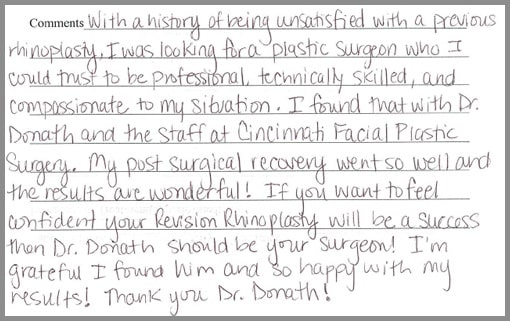 Comments With a history of being unsatisfied with a previous
rhinoplasty, I was looking for a plastic surgeon who I
could trust to be professional, technically skilled, and
compassionate to my situation. I found that with Dr.
Donath and the staff at Cincinnati Facial Plastic
Surgery. My post surgical recovery went so well and
the results are wonderful! If you want to feel
confident your Revision Rhinoplasty will be a success
then Dr. Donath should be your surgeon! I'm
grateful I found him and so happy with my
results! Thank you Dr. Donath!